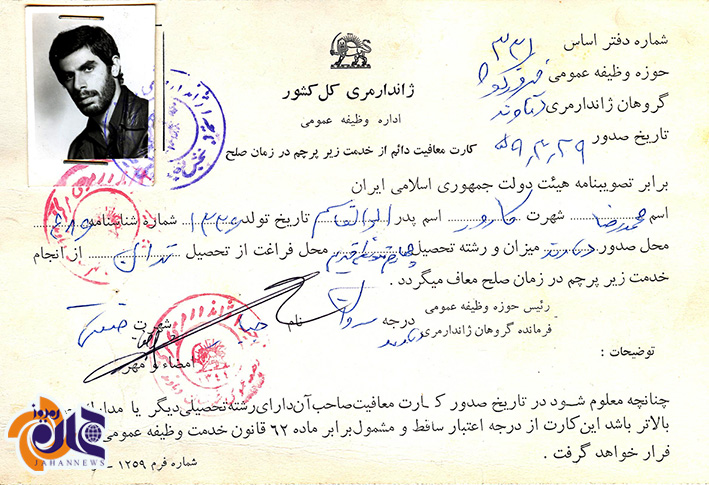 شماره دفتر اساس ۳۳۱
حوزه وظیفه عمومی فیروزکوه
گروهان ژاندارمری دماوند
تاریخ صدور ۵۹٫۳٫۲۹
ژاندارمری کل کشور
اداره وظیفه عمومی
کارت معافیت دائم از خدمت زیر پرچم در زمان صلح
برابر تصویبنامه هیئت دولت جمهوری اسلامی ایران
اسم محمدرضا شهرت اسم پدر ابوالقاسم تاریخ تولد شماره شناسنامه
محل صدور دماوند میزان و رشته تحصیل چهارم متوسطه قدیم محل فراغت از تحصیل تهران از انجام
خدمت زیر پرچم در زمان صلح معاف میگردد .
رئیس حوزه وظیفه عمومی
فرمانده گروهان ژاندارمری دماوند
درجه سروان نام شهرت
امضاء و مهر
توضیحات :
چنانچه معلوم شود در تاریخ صدور کارت معافیت صاحب آن دارای رشته تحصیلی دیگر یا
بالاتر باشد این کارت از درجه اعتبار ساقط و مشمول برابر ماده ۶۲ قانون خدمت وظیفه عمومی
قرار خواهد گرفت .
شماره فرم ۱۲۵۹
جهان
امروز
JAHANNEWS